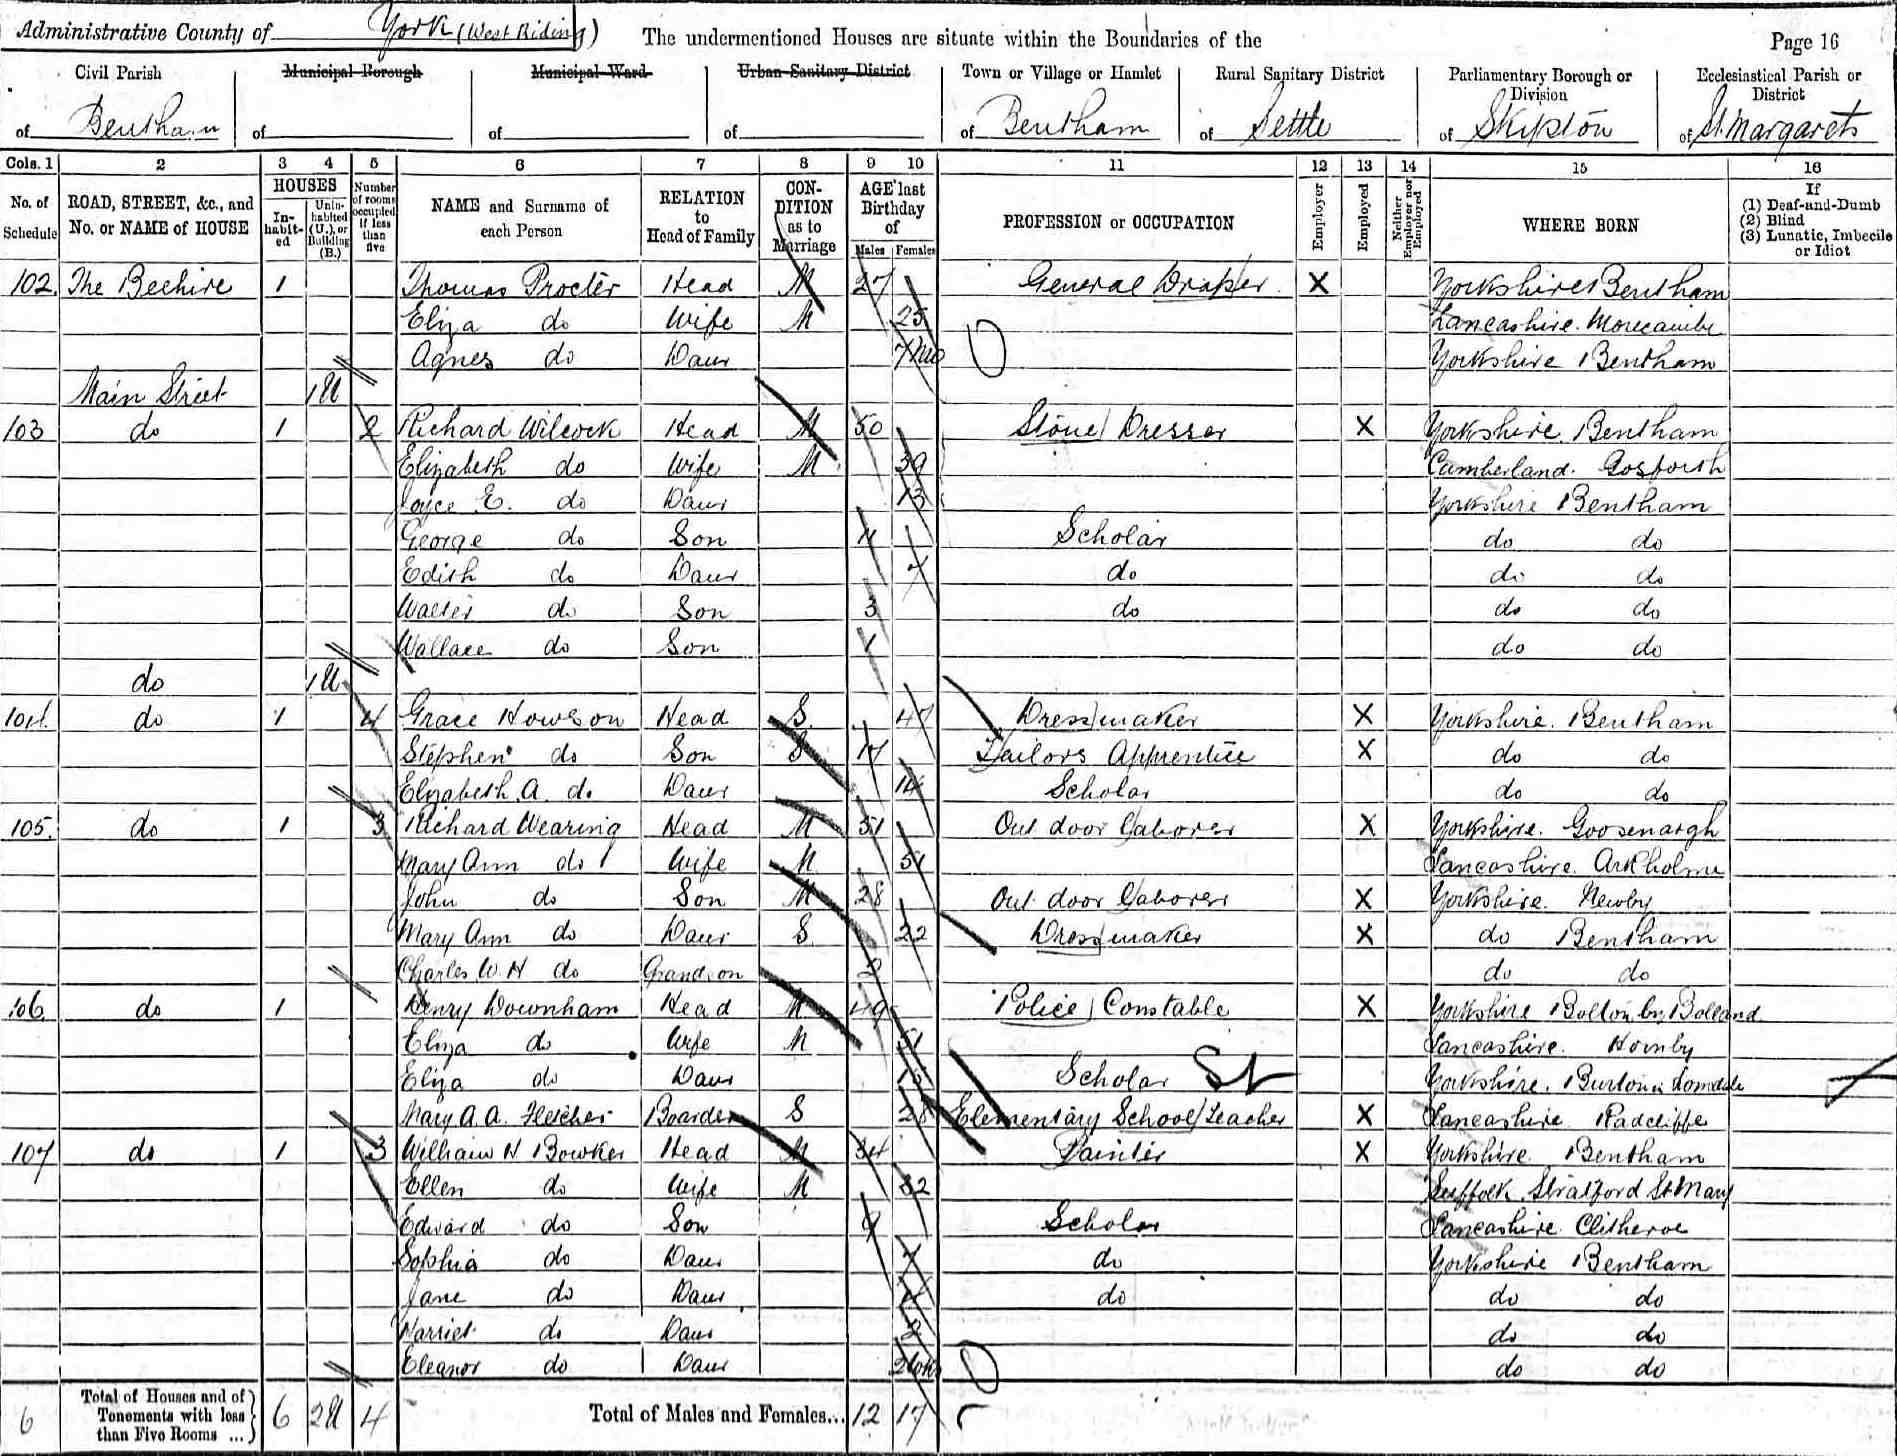 Administrative County of York (West Riding) The undermentioned Houses are situate within the Boundaries of the Page 16
Civil Parish Municipal Borough Municipal Ward Urban Sanitary District Town or Village or Hamlet Rural Sanitary District Parliamentary Borough or Division Ecclesiastical Parish or District
of Bentham of of of of Bentham of Settle of Skipton of St. Margarets
Cols. 1 2 3 4 5 6 7 8 9 10 11 12 13 14 15 16
No. of Schedule ROAD, STREET, &c., and No. or NAME of HOUSE HOUSES In-habit-ed Unin-habited (U.), or Building (B.) Number of rooms occupied if less than five NAME and Surname of each Person RELATION to Head of Family CON-DITION as to Marriage AGE last Birthday of Males Females PROFESSION or OCCUPATION Employer Employed Neither Employer nor Employed WHERE BORN If (1) Deaf-and-Dumb (2) Blind (3) Lunatic, Imbecile or Idiot
102. The Beehive 1 Thomas Procter Head M 27 General Draper X Yorkshire Bentham
Eliza do Wife M 25 Lancashire. Morecambe
Agnes do Daur 7 mo Yorkshire Bentham
Main Street 1 U
103 do 1 2 Richard Wilcock Head M 50 Stone Dresser X Yorkshire. Bentham
Elizabeth do Wife M 39 Cumberland. Gosforth
Joyce E. do Daur 13 Yorkshire Bentham
George do Son 11 Scholar do do
Edith do Daur 7 do do do
Walter do Son 3 do do do
Wallace do Son 1 do do
do 1 U
104. do 1 4 Grace Howson Head S 47 Dressmaker X Yorkshire. Bentham
Stephen do Son S 17 Tailors Apprentice X do do
Elizabeth. A. do Daur 14 Scholar do do
105. do 1 3 Richard Wearing Head M 51 Out door Laborer X Yorkshire. Goosenargh
Mary Ann do Wife M 51 Lancashire. Arkholme
John do Son M 28 Out door Laborer X Yorkshire. Newby
Mary Ann do Daur S 22 Dressmaker X do Bentham
Charles W. H do Grandson 2 do do
106. do 1 Henry Downham Head M 49 Police Constable X Yorkshire Bolton by Bolland
Eliza do Wife M 51 Lancashire. Hornby
Eliza do Daur Scholar Yorkshire. Burton in Lonsdale
Mary A. A. Fletcher Boarder S 28 Elementary School Teacher X Lancashire Radcliffe
107 do 1 3 William H Bowker Head M 34 Painter X Yorkshire Bentham
Ellen do Wife M 32 Suffolk. Stratford St Mary
Edward do Son 9 Scholar Lancashire. Clitheroe
Sophia do Daur 7 do Yorkshire Bentham
Jane do Daur 4 do do do
Harriet do Daur 2 do do
Eleanor do Daur 2 wks do do
6 Total of Houses and of Tenements with less than Five Rooms ... 6 2U 4 Total of Males and Females... 12 17